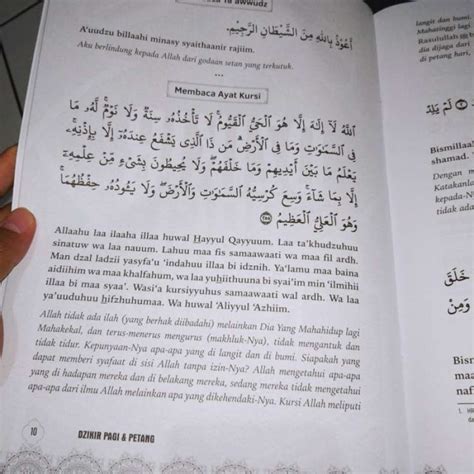 Ta'awudz
أَعُوْذُ بِاللهِ مِنَ الشَّيْطَانِ الرَّجِيْمِ.
A'uudzu billaahi minasy syaithaanir rajiim.
Aku berlindung kepada Allah dari godaan setan yang terkutuk.
Membaca Ayat Kursi
اللهُ لَآ إِلَٰهَ إِلَّا هُوَ الْحَيُّ الْقَيُّومُ لَا تَأْخُذُهُۥ سِنَةٌ وَلَا نَوْمٌ لَّهُۥ مَا
فِي السَّمَٰوَٰتِ وَمَا فِي الْأَرْضِ مَن ذَا الَّذِي يَشْفَعُ عِندَهُۥٓ إِلَّا بِإِذْنِهِۦ
يَعْلَمُ مَا بَيْنَ أَيْدِيهِمْ وَمَا خَلْفَهُمْ وَلَا يُحِيطُونَ بِشَيْءٍ مِّنْ عِلْمِهِۦٓ
إِلَّا بِمَا شَآءَ وَسِعَ كُرْسِيُّهُ السَّمَٰوَٰتِ وَالْأَرْضَ وَلَا يَئُودُهُۥ حِفْظُهُمَا
وَهُوَ الْعَلِيُّ الْعَظِيمُ
Allaahu laa ilaaha illaa huwal Hayyul Qayyuum. Laa ta'khudzuhuu
sinatuw wa laa nauum. Lahuu maa fis samaawaati wa maa fil ardh.
Man dzal ladzii yasyfa'u 'indahuu illaa bi idznih. Ya'lamu maa baina
aidiihim wa maa khalfahum, wa laa yuhiithuuna bi syai'im min 'ilmihii
illaa bi maa syaa'. Wasi'a kursiyyuhus samaawaati wal ardh. Wa laa
ya'uuduhuu hifzhuhumaa. Wa huwal 'Aliyyul 'Azhiim.
Allah tidak ada ilah (yang berhak diibadahi) melainkan Dia Yang Mahahidup lagi
Mahakekal, dan terus-menerus mengurus (makhluk-Nya), tidak mengantuk dan
tidak tidur. Kepunyaan-Nya apa-apa yang di langit dan di bumi. Siapakah yang
dapat memberi syafaat di sisi Allah tanpa izin-Nya? Allah mengetahui apa-apa
yang di hadapan mereka dan di belakang mereka, sedang mereka tidak mengetahui
apa-apa dari ilmu Allah melainkan apa yang dikehendaki-Nya. Kursi Allah meliputi
10 DZIKIR PAGI & PETANG
langit dan bumi
Mahatinggi lagi
Rasulullah
dia dijaga dari
di petang hari,
لَمْ يَلِدْ
Bismillaa
shamad.
Dengan
Katakanla
kepada-N
tidak ada
خَلَقَ
وَمِنْ
Bismillaa
maa
naffaa
Maha
dari
1. Hi